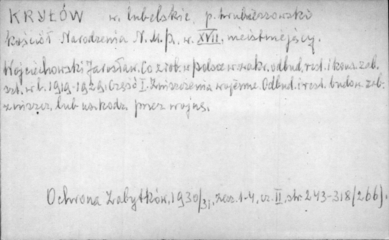 KRYŁÓW w. lubelskie, p. hrubieszowski
kościół Narodzenia N.M.P., w. XVII. nieistniejący.
Wojciechowski Jarosław. Co zrob. w Polsce w zakr. odbud., rest. i kons. zab.
szt. w l. 1919-1929. Część I. Zniszczenia wojenne. Odbud. i rest. budow. zab.
zniszcz. lub uszkodz. przez wojnę.
Ochrona Zabytków, 1930/31, zesz. 1-4, cz. II, str. 243-318/266/.